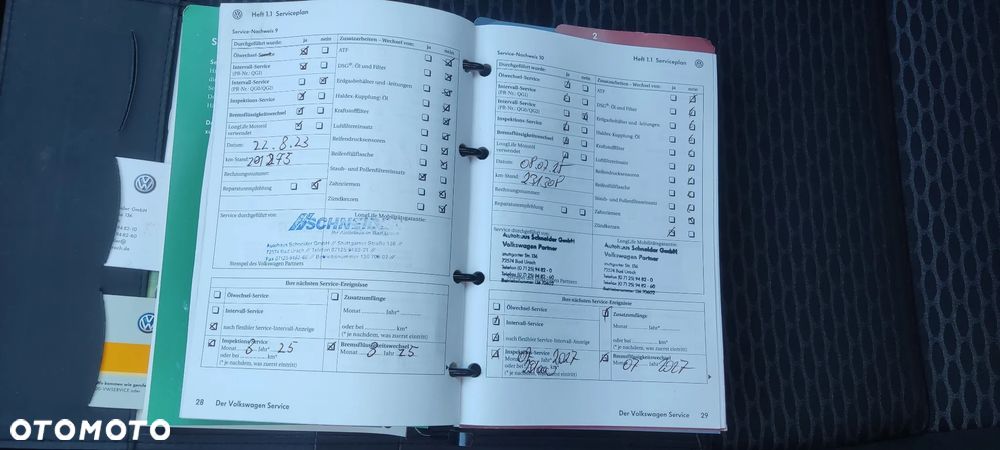 Heft 1.1 Serviceplan
Service-Nachweis 9
Durchgeführt wurde: ja nein
Zusatzarbeiten – Wechsel von: ja nein
Ölwechsel-Service
ATF
Intervall-Service
(PR-Nr.: QG1)
DSG®-Öl und Filter
Intervall-Service
(PR-Nr.: QG0/QG2)
Erdgasbehälter und -leitungen
Inspektions-Service
Haldex-Kupplung: Öl
Bremsflüssigkeitswechsel
Kraftstofffilter
LongLife Motoröl
verwendet
Luftfiltereinsatz
Datum: 22.8.23
Reifendrucksensoren
km-Stand:
Reifenfüllflasche
Rechnungsnummer:
Staub- und Pollenfiltereinsatz
Reparaturempfehlung
Zahnriemen
Zündkerzen
Service durchgeführt von:
LongLife Mobilitätsgarantie:
SCHNEIDER
Ihr Autohaus in Bad Urach
Autohaus Schneider GmbH // Stuttgarter Straße 136 //
72574 Bad Urach // Telefon 07125/94 82-0 //
Stempel des Volkswagen Partners
Ihre nächsten Service-Ereignisse
Ölwechsel-Service
Zusatzumfänge
Intervall-Service
Monat Jahr*
oder bei km*
(* je nachdem, was zuerst eintritt)
nach flexibler Service-Intervall-Anzeige
Inspektions-Service
Monat 8 Jahr* 25
oder bei km*
(* je nachdem, was zuerst eintritt)
Bremsflüssigkeitswechsel
Monat 8 Jahr 25
28 Der Volkswagen Service
2
Service-Nachweis 10
Heft 1.1 Serviceplan
Durchgeführt wurde: ja nein
Zusatzarbeiten – Wechsel von: ja nein
Ölwechsel-Service
ATF
Intervall-Service
(PR-Nr.: QG1)
DSG®-Öl und Filter
Intervall-Service
(PR-Nr.: QG0/QG2)
Erdgasbehälter und -leitungen
Inspektions-Service
Haldex-Kupplung: Öl
Bremsflüssigkeitswechsel
Kraftstofffilter
LongLife Motoröl
verwendet
Luftfiltereinsatz
Datum: 08.07.25
Reifendrucksensoren
km-Stand: 231308
Reifenfüllflasche
Rechnungsnummer:
Staub- und Pollenfiltereinsatz
Reparaturempfehlung
Zahnriemen
Zündkerzen
Service durchgeführt von:
LongLife Mobilitätsgarantie:
Autohaus Schneider GmbH
Volkswagen Partner
Stuttgarter Str. 136
72574 Bad Urach
Telefon (0 71 25) 94 82 - 0
Telefax (0 71 25) 94 82 - 60
Autohaus Schneider GmbH
Volkswagen Partner
Stuttgarter Str. 136
72574 Bad Urach
Telefon (0 71 25) 94 82 - 0
Telefax (0 71 25) 94 82 - 60
Ihre nächsten Service-Ereignisse
Ölwechsel-Service
Zusatzumfänge
Intervall-Service
Monat Jahr*
oder bei km*
(* je nachdem, was zuerst eintritt)
nach flexibler Service-Intervall-Anzeige
Inspektions-Service
Monat 07 Jahr* 2027
oder bei km*
(* je nachdem, was zuerst eintritt)
Bremsflüssigkeitswechsel
Monat 07 Jahr 2027
Der Volkswagen Service 29
OTOMOTO